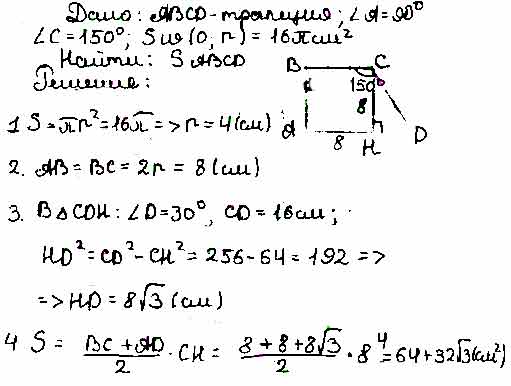 Дано: ABCD-трапеция; ∠A=90°
∠C=150°; S ω(O, r) = 16π см²
Найти: S ABCD
Решение:
B C
150°
8
A 8 H D
1 S=πr²=16π=>r=4(см)
2. AB=BC=2r=8(см)
3. В△CDH: ∠D=30°, CD=16см;
HD²=CD²-CH²=256-64=192=>
=>HD=8√3(см)
4 S= (BC+AD)/2 · CH = (8+8+8√3)/2 · 8⁴=64+32√3(см²)